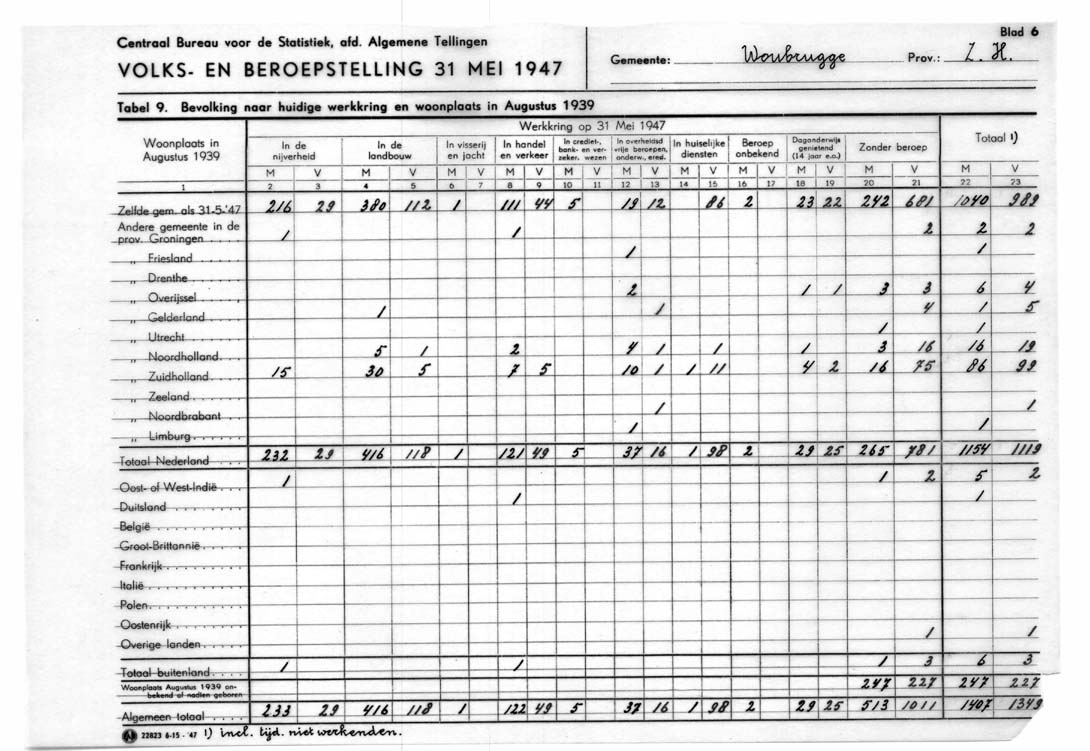 Blad 6
Centraal Bureau voor de Statistiek, afd. Algemene Tellingen
VOLKS- EN BEROEPSTELLING 31 MEI 1947
Gemeente: Woubrugge Prov.: Z. H.
Tabel 9. Bevolking naar huidige werkkring en woonplaats in Augustus 1939
Woonplaats in Augustus 1939
Werkkring op 31 Mei 1947
Totaal 1)
In de nijverheid
In de landbouw
In visserij en jacht
In handel en verkeer
In crediet-, bank- en verzeker. wezen
In overheidsd vrije beroepen, onderw., ered.
In huiselijke diensten
Beroep onbekend
Dagonderwijs genietend (14 jaar e.o.)
Zonder beroep
M V M V M V M V M V M V M V M V M V M V M V
1 2 3 4 5 6 7 8 9 10 11 12 13 14 15 16 17 18 19 20 21 22 23
Zelfde gem. als 31-5-'47 216 29 380 112 1 111 44 5 19 12 86 2 23 22 242 681 1040 989
Andere gemeente in de
prov. Groningen 1 1 2 2 2
„ Friesland 1 1
„ Drenthe
„ Overijssel 2 1 1 3 3 6 4
„ Gelderland 1 1 4 1 5
„ Utrecht 1 1
„ Noordholland 5 1 2 4 1 1 1 3 16 16 19
„ Zuidholland 15 30 5 7 5 10 1 1 11 4 2 16 75 86 99
„ Zeeland
„ Noordbrabant 1 1
„ Limburg 1 1
Totaal Nederland 232 29 416 118 1 121 49 5 37 16 1 98 2 29 25 265 781 1154 1119
Oost- of West-Indië 1 1 2 5 2
Duitsland 1 1
België
Groot-Brittannië
Frankrijk
Italië
Polen
Oostenrijk
Overige landen 1 1
Totaal buitenland 1 1 1 3 6 3
Woonplaats Augustus 1939 onbekend of nadien geboren 247 227 247 227
Algemeen totaal 233 29 416 118 1 122 49 5 37 16 1 98 2 29 25 513 1011 1407 1349
22823 6-15 - '47 1) incl. tijd. niet werkenden.